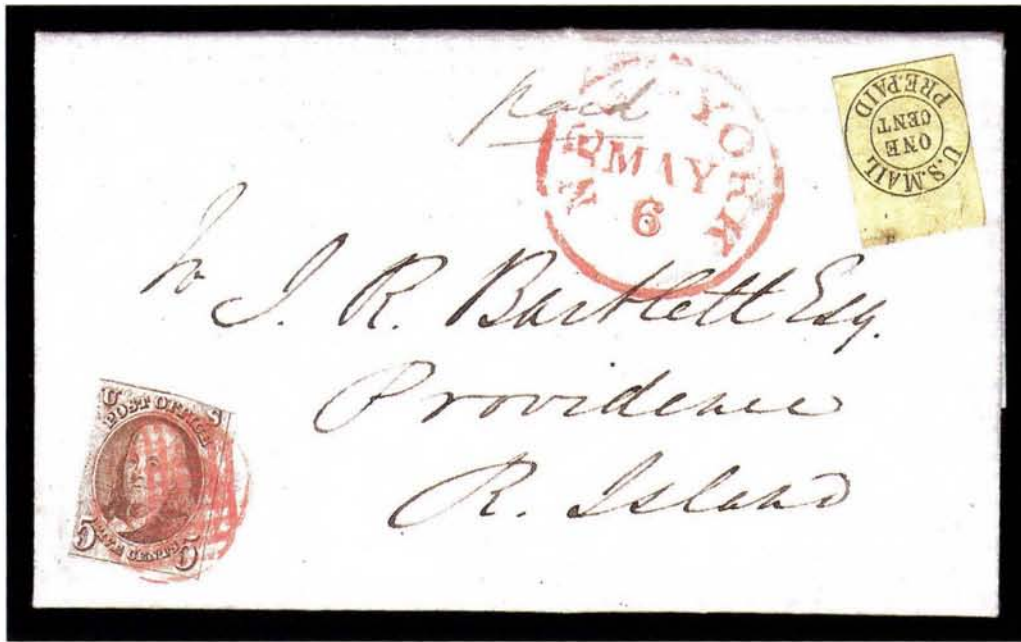 paid
NEW-YORK
MAY
6
U.S.MAIL
ONE
CENT
PRE-PAID
To J. R. Bartlett Esq.
Providence
R. Island
U S
POST OFFICE
FIVE CENTS
5 5